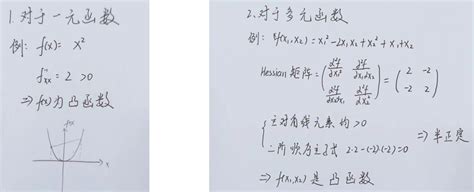 1. 对于一元函数
例: f(x) = x²
f''xx = 2 > 0
⇒ f(x)为凸函数
f(x)
x
2. 对于多元函数
例: f(x₁,x₂) = x₁² - 2x₁x₂ + x₂² + x₁ + x₂
Hessian 矩阵: = (∂²f/∂x₁² ∂²f/∂x₁∂x₂ ; ∂²f/∂x₂∂x₁ ∂²f/∂x₂²) = (2 -2 ; -2 2)
主对角线元素均>0
二阶顺序主子式 2·2-(-2)·(-2)=0
⇒ 半正定
⇒ f(x₁,x₂) 是凸函数